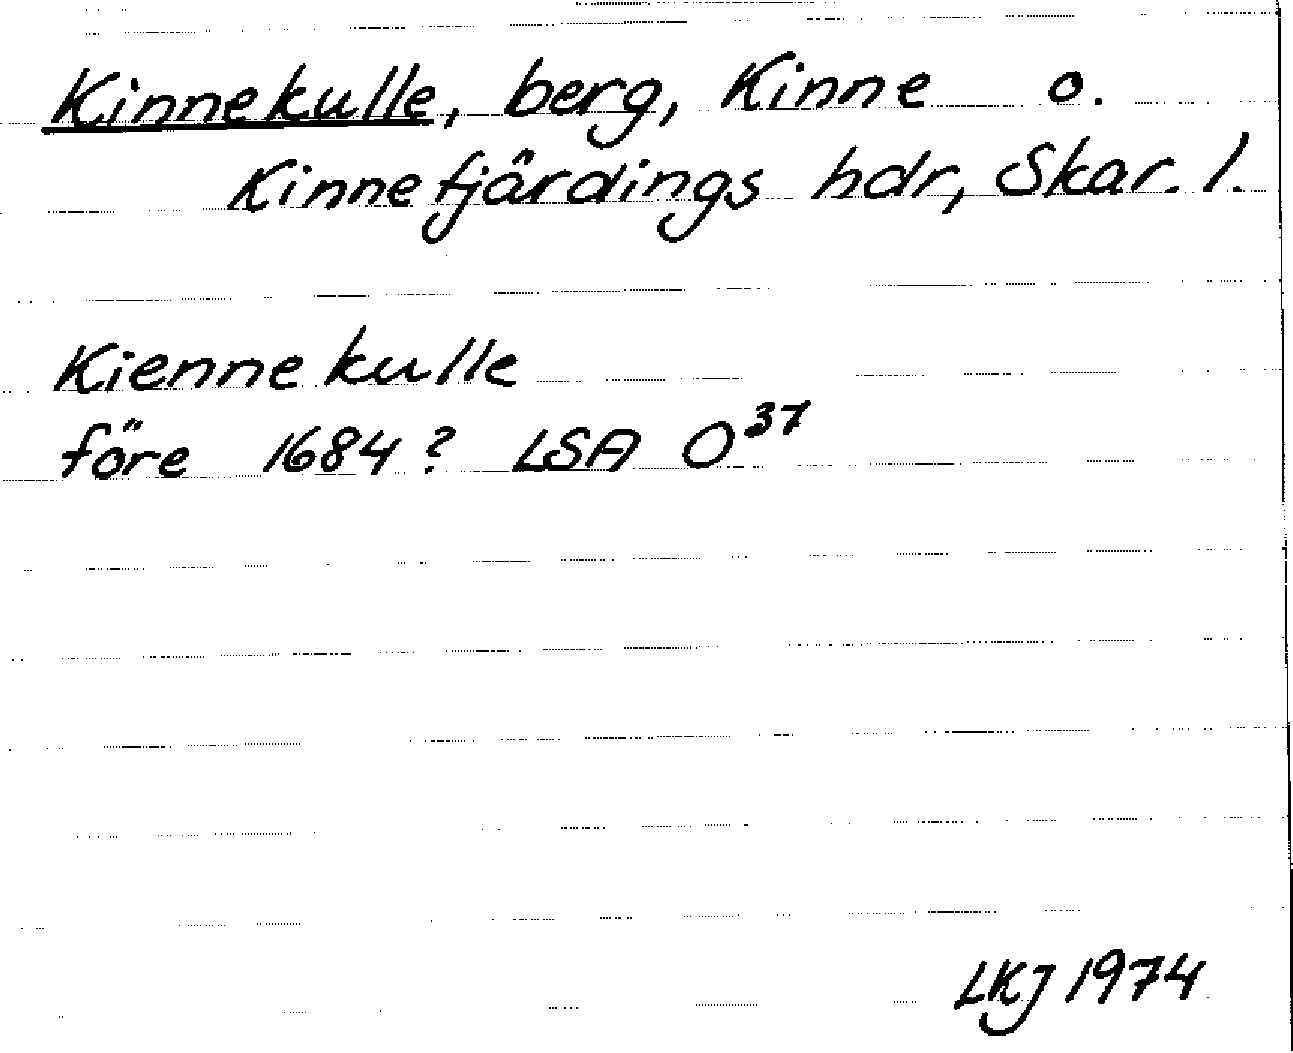 Kinnekulle, berg, Kinne o.
Kinnefjärdings hdr, Skar. l.
Kiennekulle
före 1684? LSA O³⁷
LKJ 1974